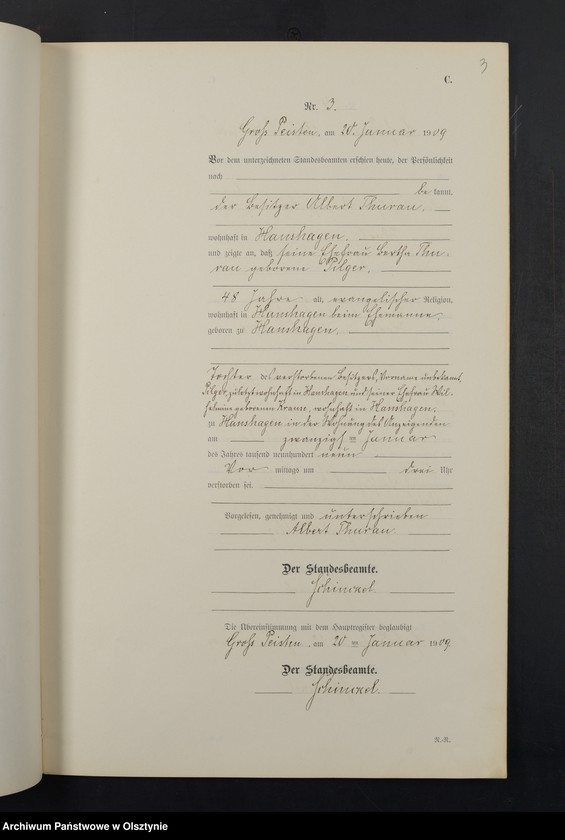 3
C.
Nr. 3.
Groß Peisten, am 20. Januar 1909
Vor dem unterzeichneten Standesbeamten erschien heute, der Persönlichkeit
nach
be kannt,
der Besitzer Albert Thurau.
wohnhaft in Hanshagen.
und zeigte an, daß seine Ehefrau Bertha Thu-
rau geborene Pilger,
48 Jahre alt, evangelischer Religion,
wohnhaft in Hanshagen beim Ehemanne.
geboren zu Hanshagen,
Tochter des verstorbenen Besitzers, Vorname unbekannt,
Pilger, zuletzt wohnhaft in Hanshagen und seiner Ehefrau Wil-
helmine geborenen Krause, wohnhaft in Hanshagen.
zu Hanshagen in der Wohnung des Anzeigenden
am zwanzigsten Januar
des Jahres tausend neunhundert neun
Vor mittags um drei Uhr
verstorben sei.
Vorgelesen, genehmigt und unterschrieben
Albert Thurau.
Der Standesbeamte.
Schinckel.
Die Übereinstimmung mit dem Hauptregister beglaubigt
Groß Peisten, am 20 ten Januar 1909.
Der Standesbeamte.
Schinckel.
R.-R.
Archiwum Państwowe w Olsztynie